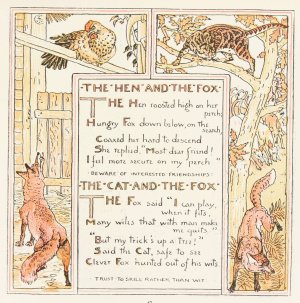 ·THE·HEN·AND·THE·FOX·
THE Hen roosted high on her
perch;
Hungry Fox down below, on the
search,
Coaxed her hard to descend
She replied, "Most dear friend!
I feel more secure on my perch."
BEWARE OF INTERESTED FRIENDSHIPS
·THE·CAT·AND·THE·FOX·
THE Fox said "I can play,
when it fits,
Many wiles that with man make
me quits."
"But my trick's up a tree!"
Said the Cat, safe to see
Clever Fox hunted out of his wits.
TRUST TO SKILL RATHER THAN WIT